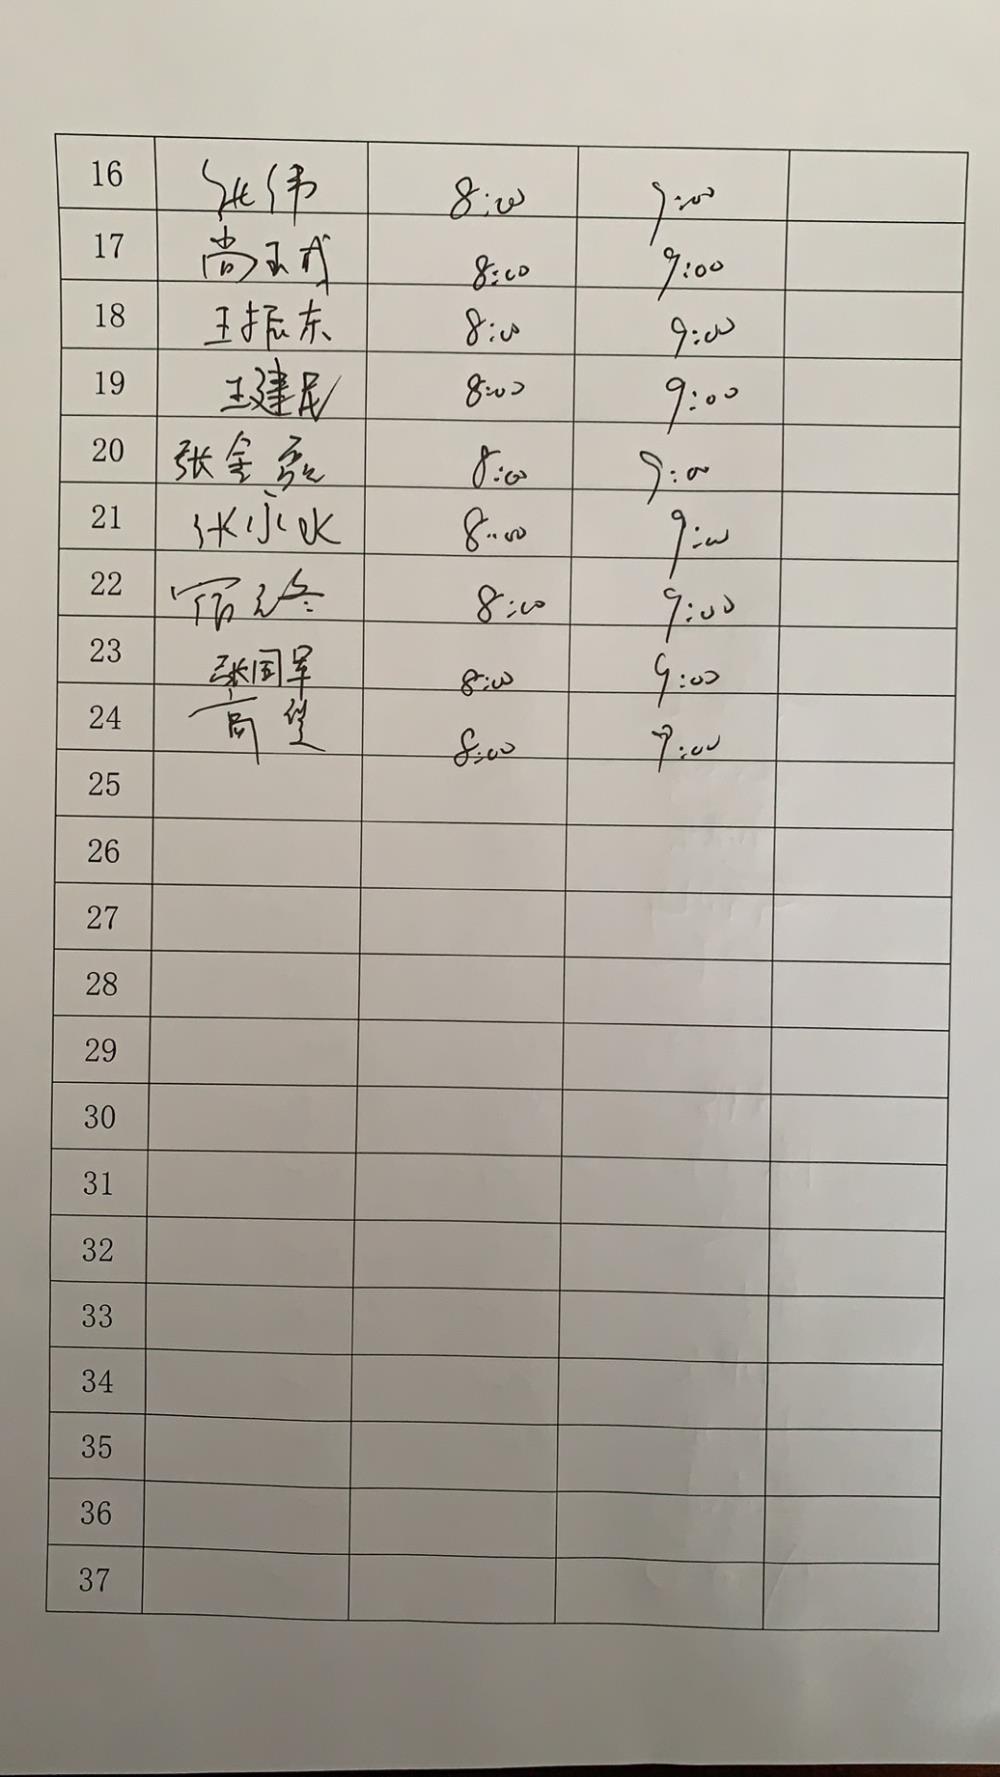 16 张伟 8:00 9:00
17 尚玉成 8:00 9:00
18 王振东 8:00 9:00
19 王建民 8:00 9:00
20 张金 8:00 9:00
21 张永水 8:00 9:00
22 8:00 9:00
23 张国军 8:00 9:00
24 高 8:00 9:00
25
26
27
28
29
30
31
32
33
34
35
36
37